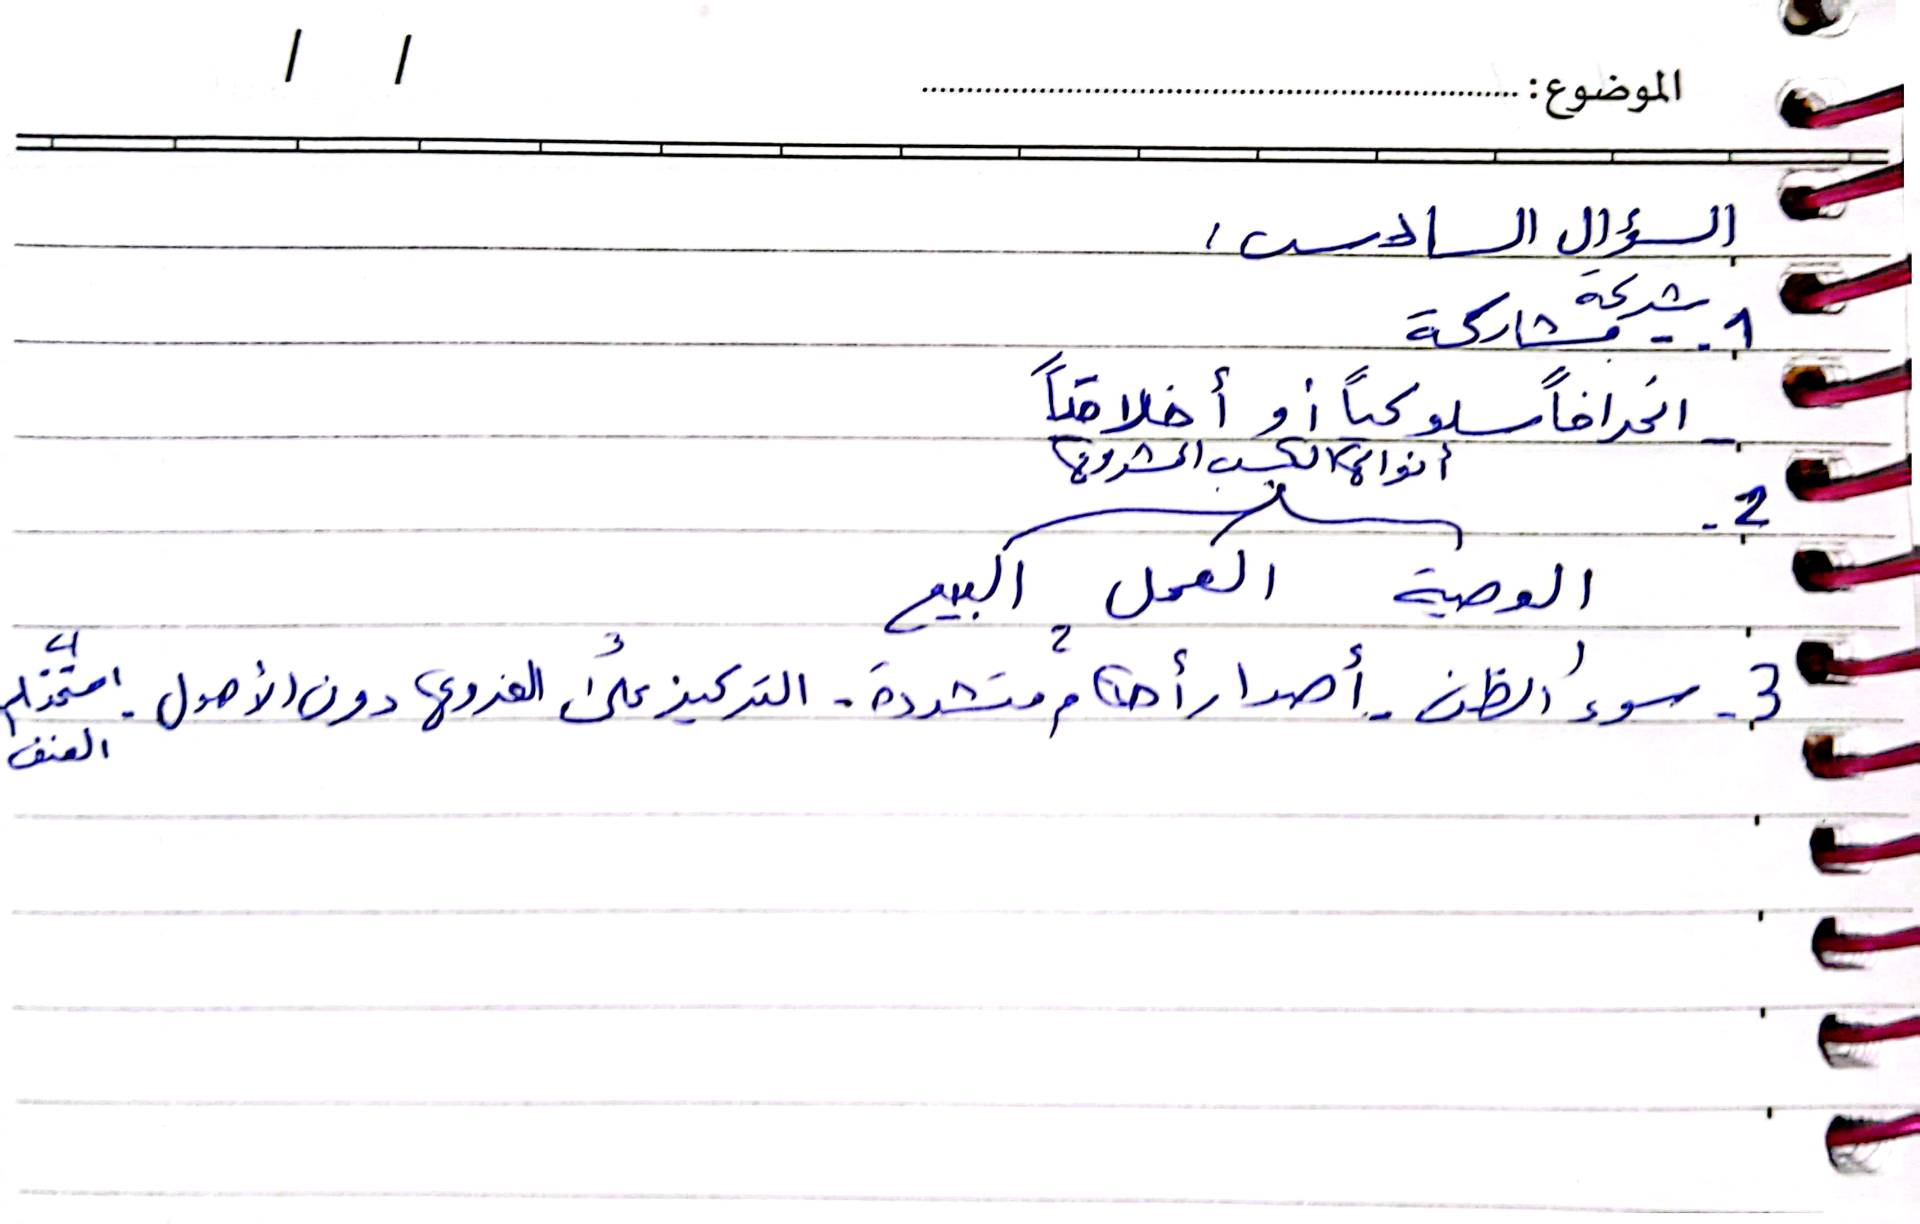 الموضوع: ........................ / /
السؤال السادس :
1- - شركة مشاركة
- انحرافاً سلوكياً أو أخلاقياً
2- أنواع الكسب المشروع
الوصية العمل البيع
1 2 3 4
3- سوء الظن - أصدار أحكام متشددة - التركيز على الفروع دون الأصول - استخدام
العنف